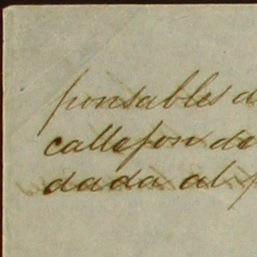 ponsables d
callefon de
dada al p